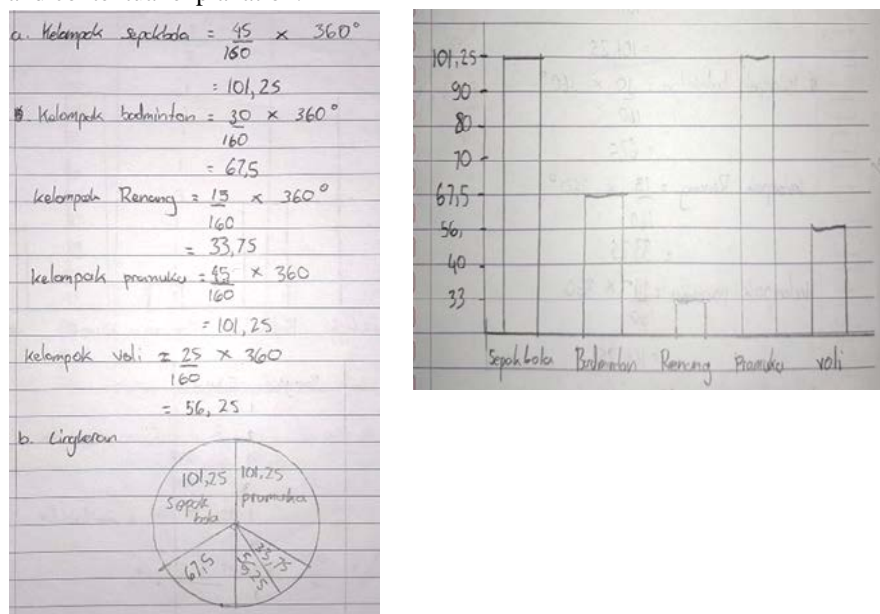 a. Kelompok sepakbola = 45/160 × 360°
= 101,25
B. Kelompok badminton = 30/160 × 360°
= 67,5
kelompok Renang = 15/160 × 360°
= 33,75
kelompok pramuka = 45/160 × 360
= 101,25
kelompok voli = 25/160 × 360
= 56,25
b. Lingkaran
101,25
sepak
bola
101,25
pramuka
67,5
56,25
33,75
101,25
90
80
70
67,5
56,
40
33
Sepakbola Badminton Renang Pramuka voli